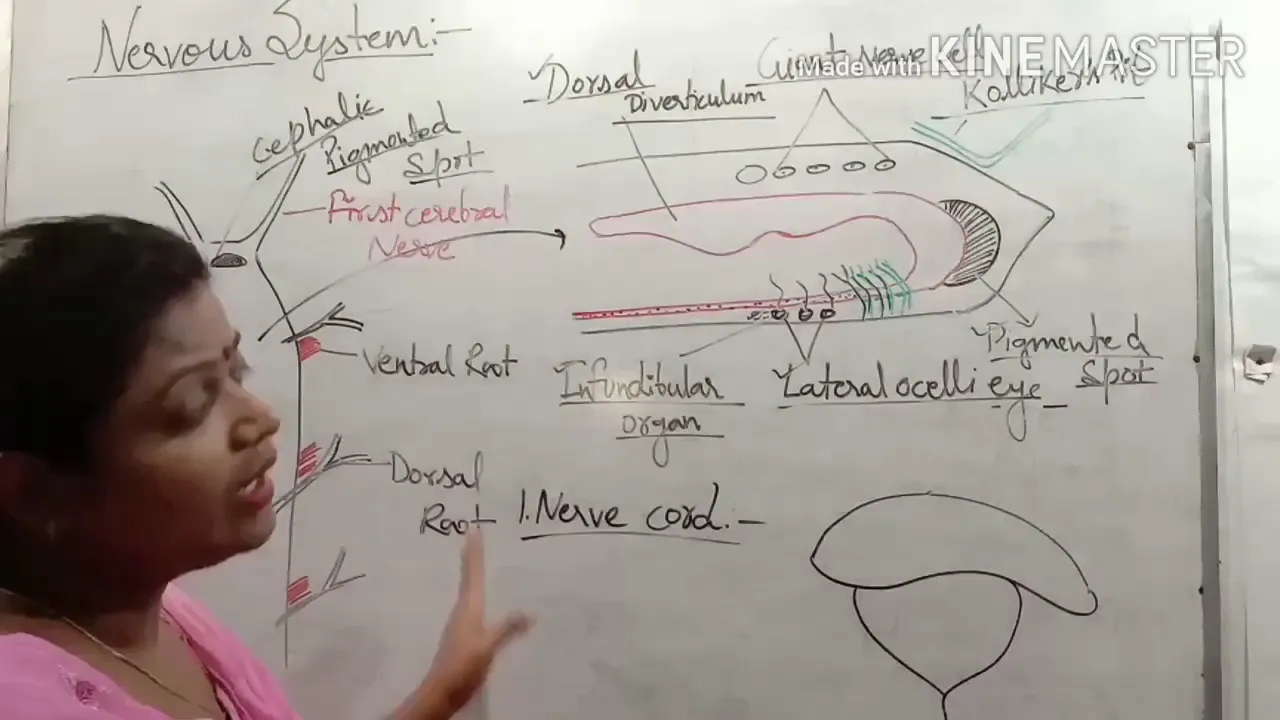 Nervous System:-
Cephalic
Pigmented
Spot
First cerebral
Nerve
Ventral Root
Dorsal
Root
Dorsal
Diverticulum
Giant nerve cell
Made with KINEMASTER
Kolliker's Pit
Pigmented
Spot
Infundibular
organ
Lateral ocelli eye
1. Nerve cord:-